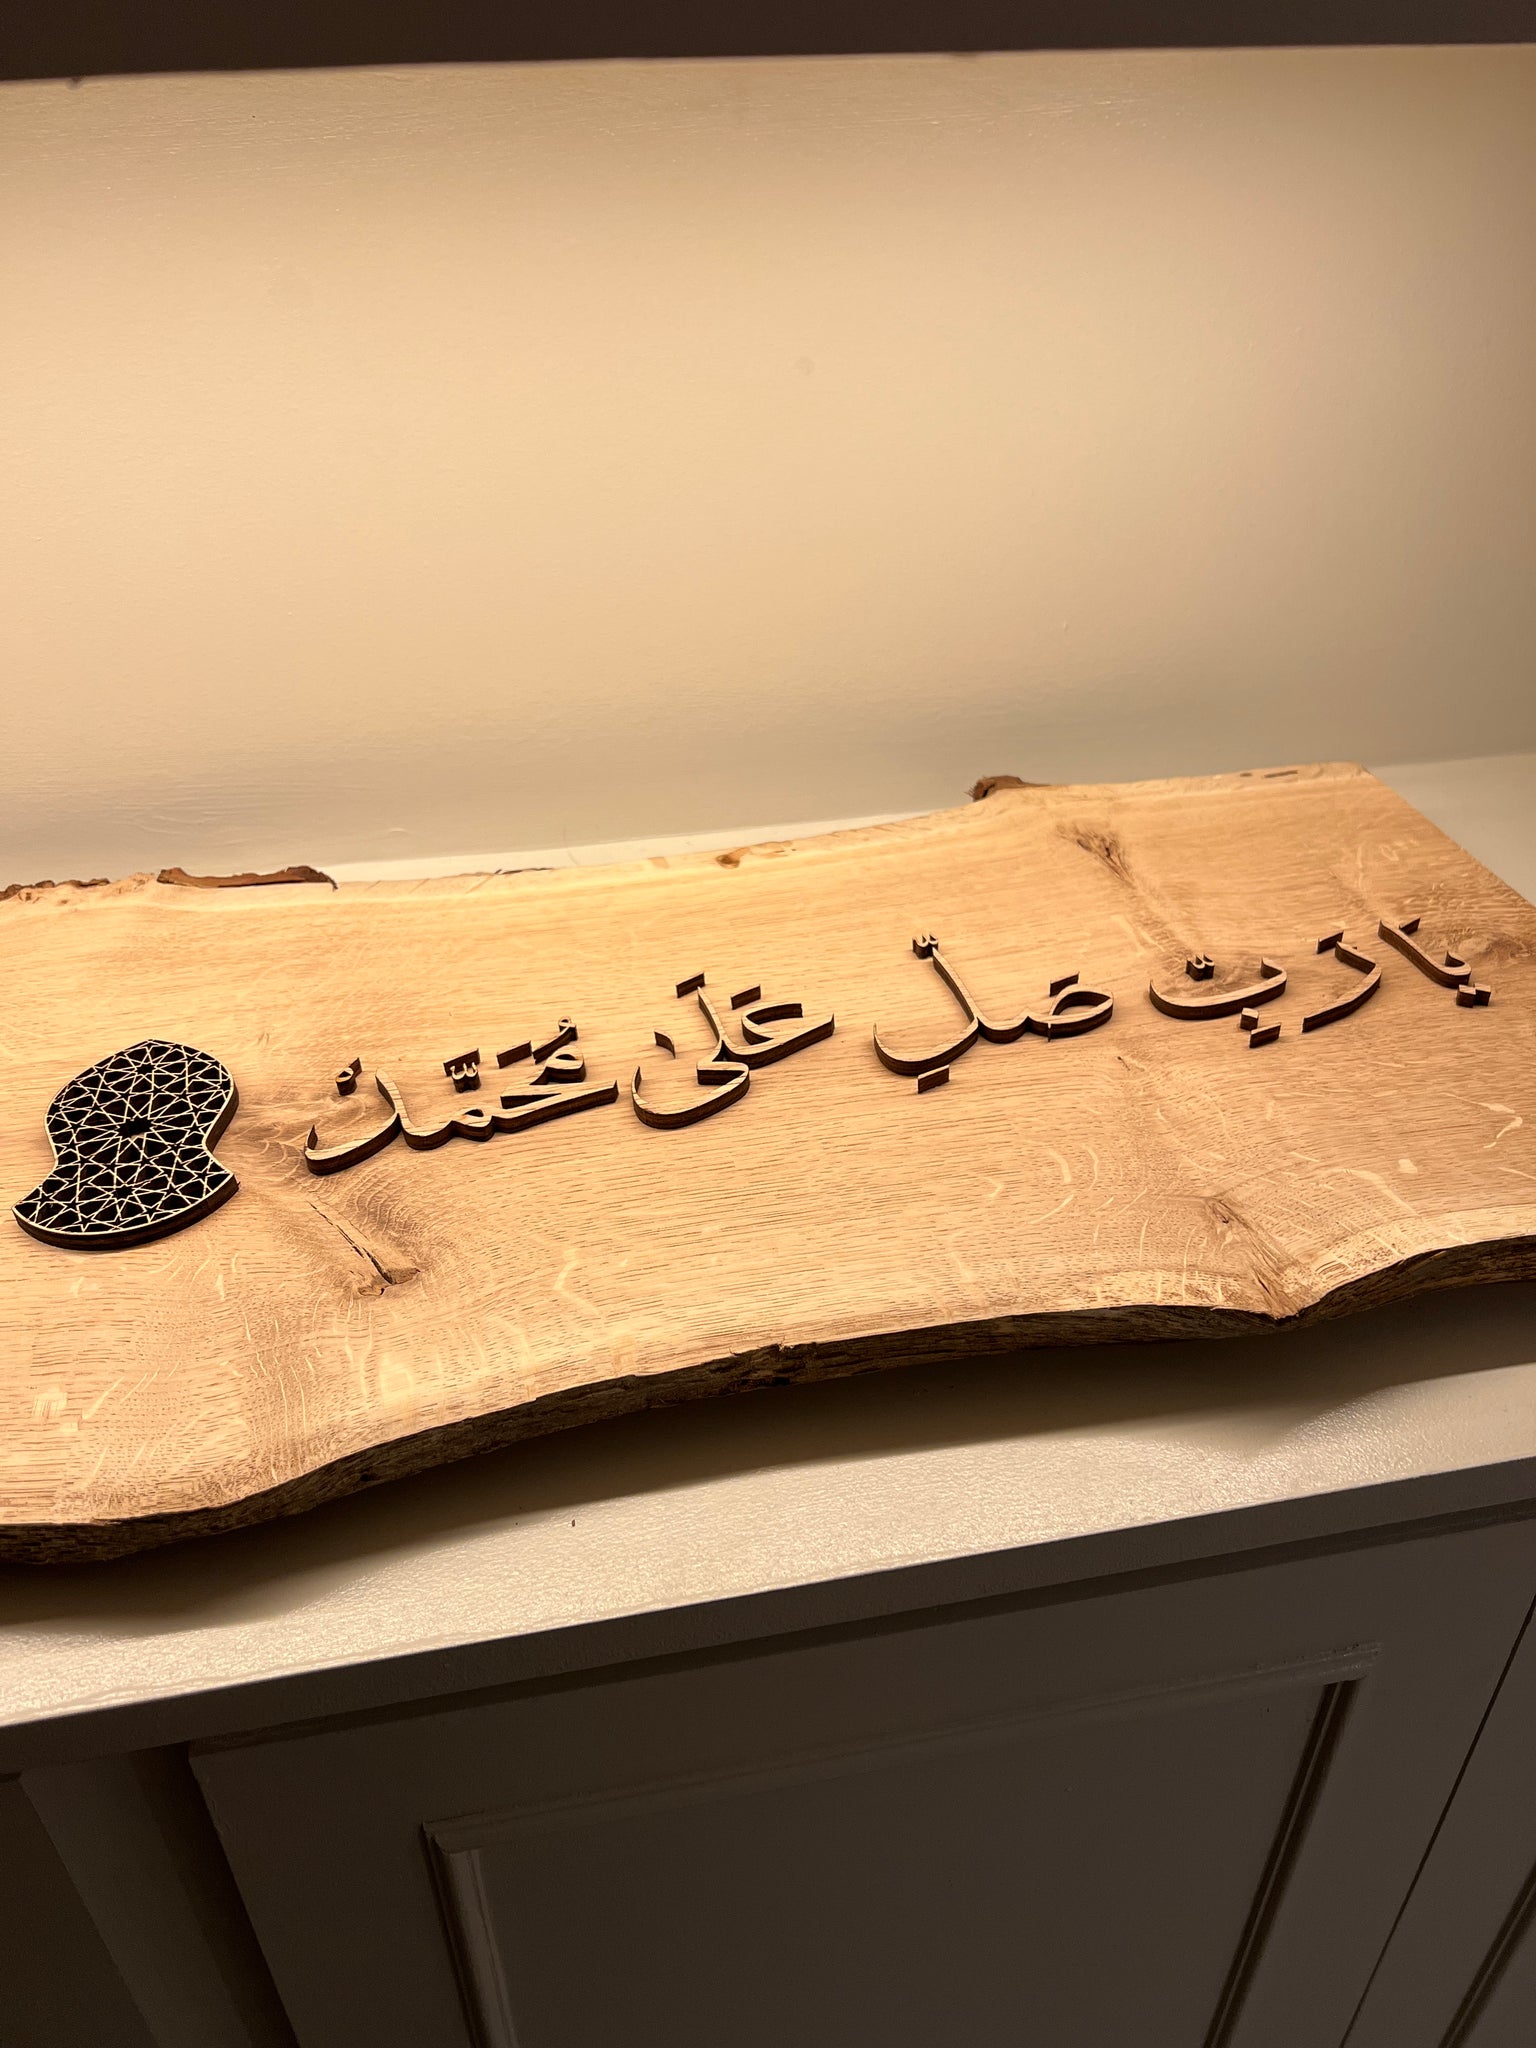 يَا رَبِّ صَلِّ عَلَى مُحَمَّدْ